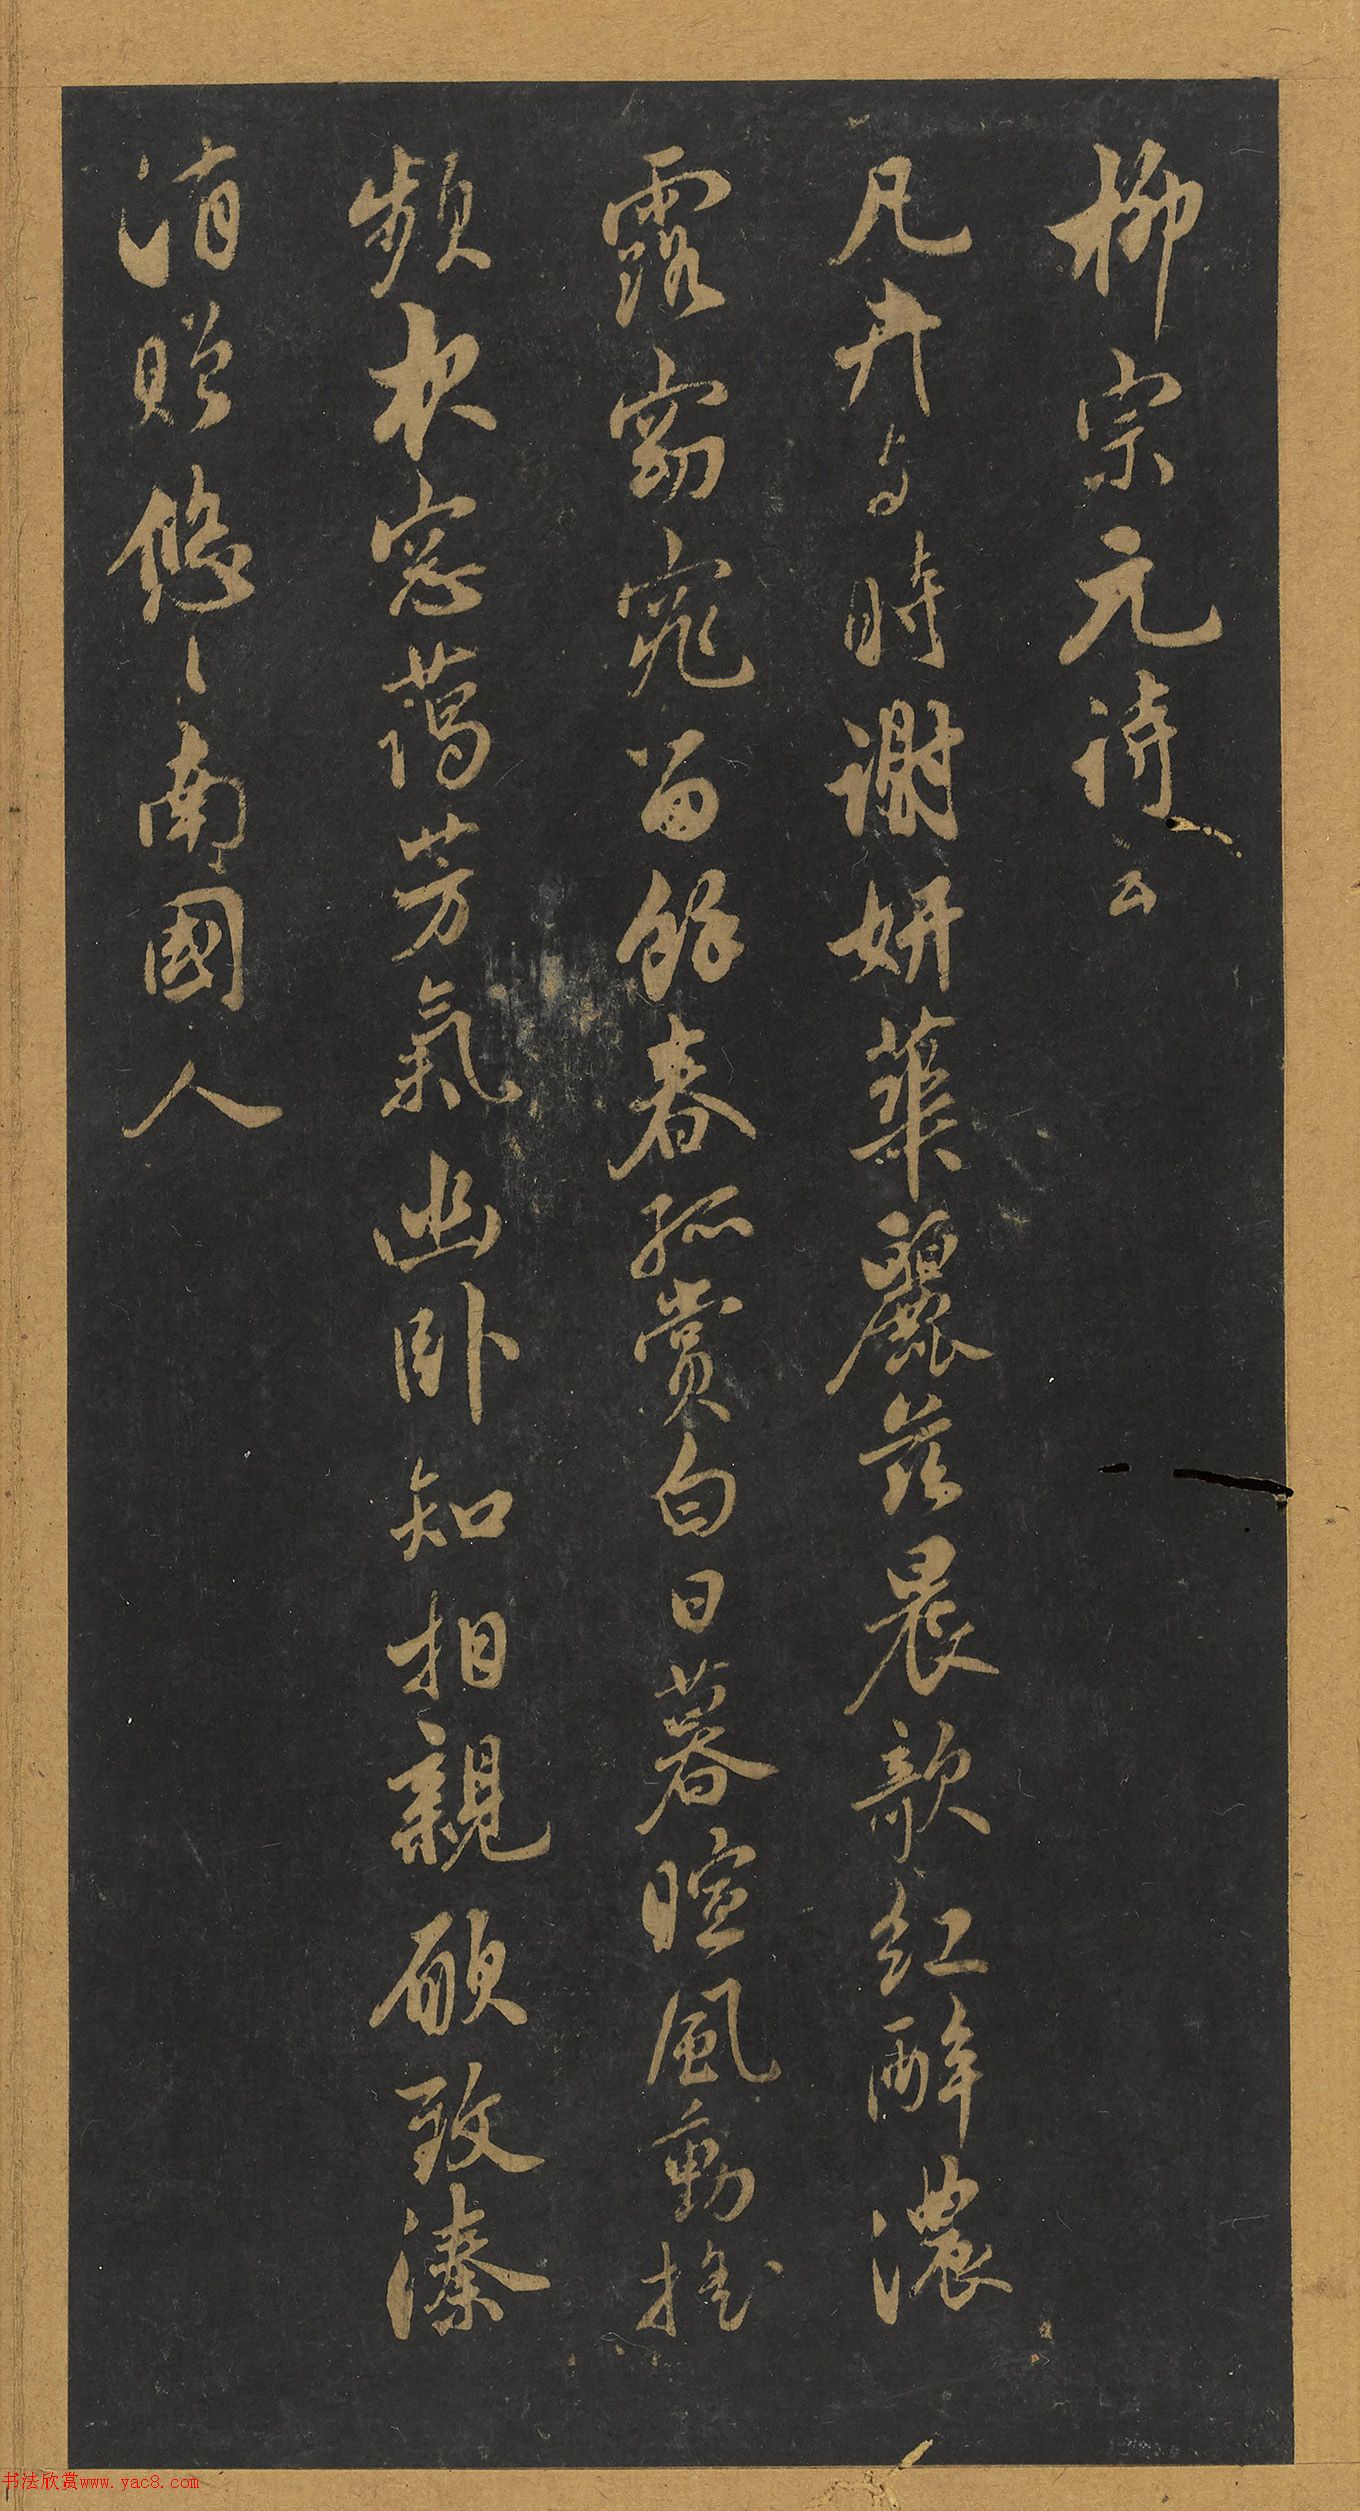 柳宗元詩云
凡卉与時謝妍華麗茲晨欹紅醉濃
露窈窕留餘春孤賞白日暮暄風動搖
頻夜窓藹芳氣幽臥知相親願致溱
洧贈悠〻南國人
书法欣赏www.yac8.com